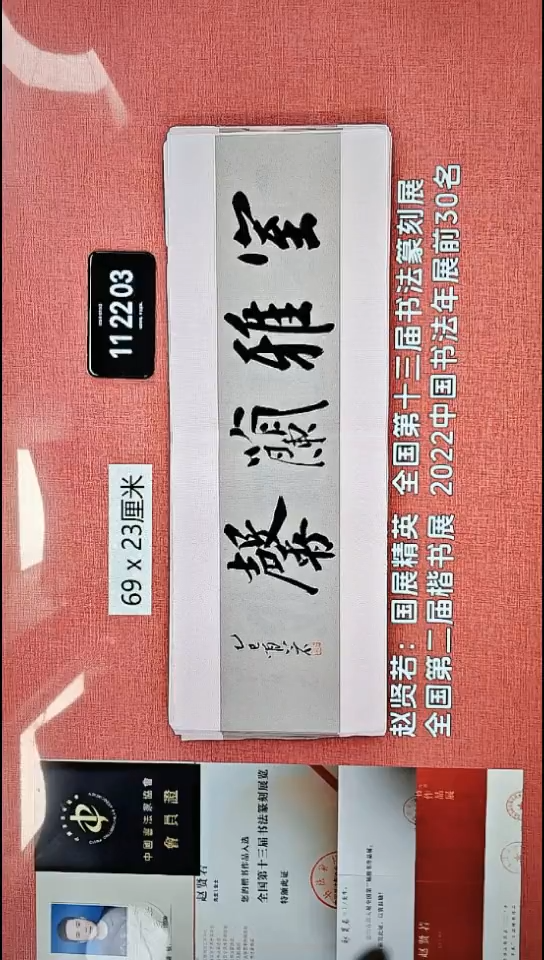 11 22 03
69 x 23厘米
室雅蘭馨
乙巳賢若
赵贤若：国展精英 全国第十三届书法篆刻展
全国第二届楷书展 2022中国书法年展前30名
中國書法家協會
會員證
赵贤若
您的楷书作品入选
全国第十三届书法篆刻展览
特颁此证
作品展
赵贤若